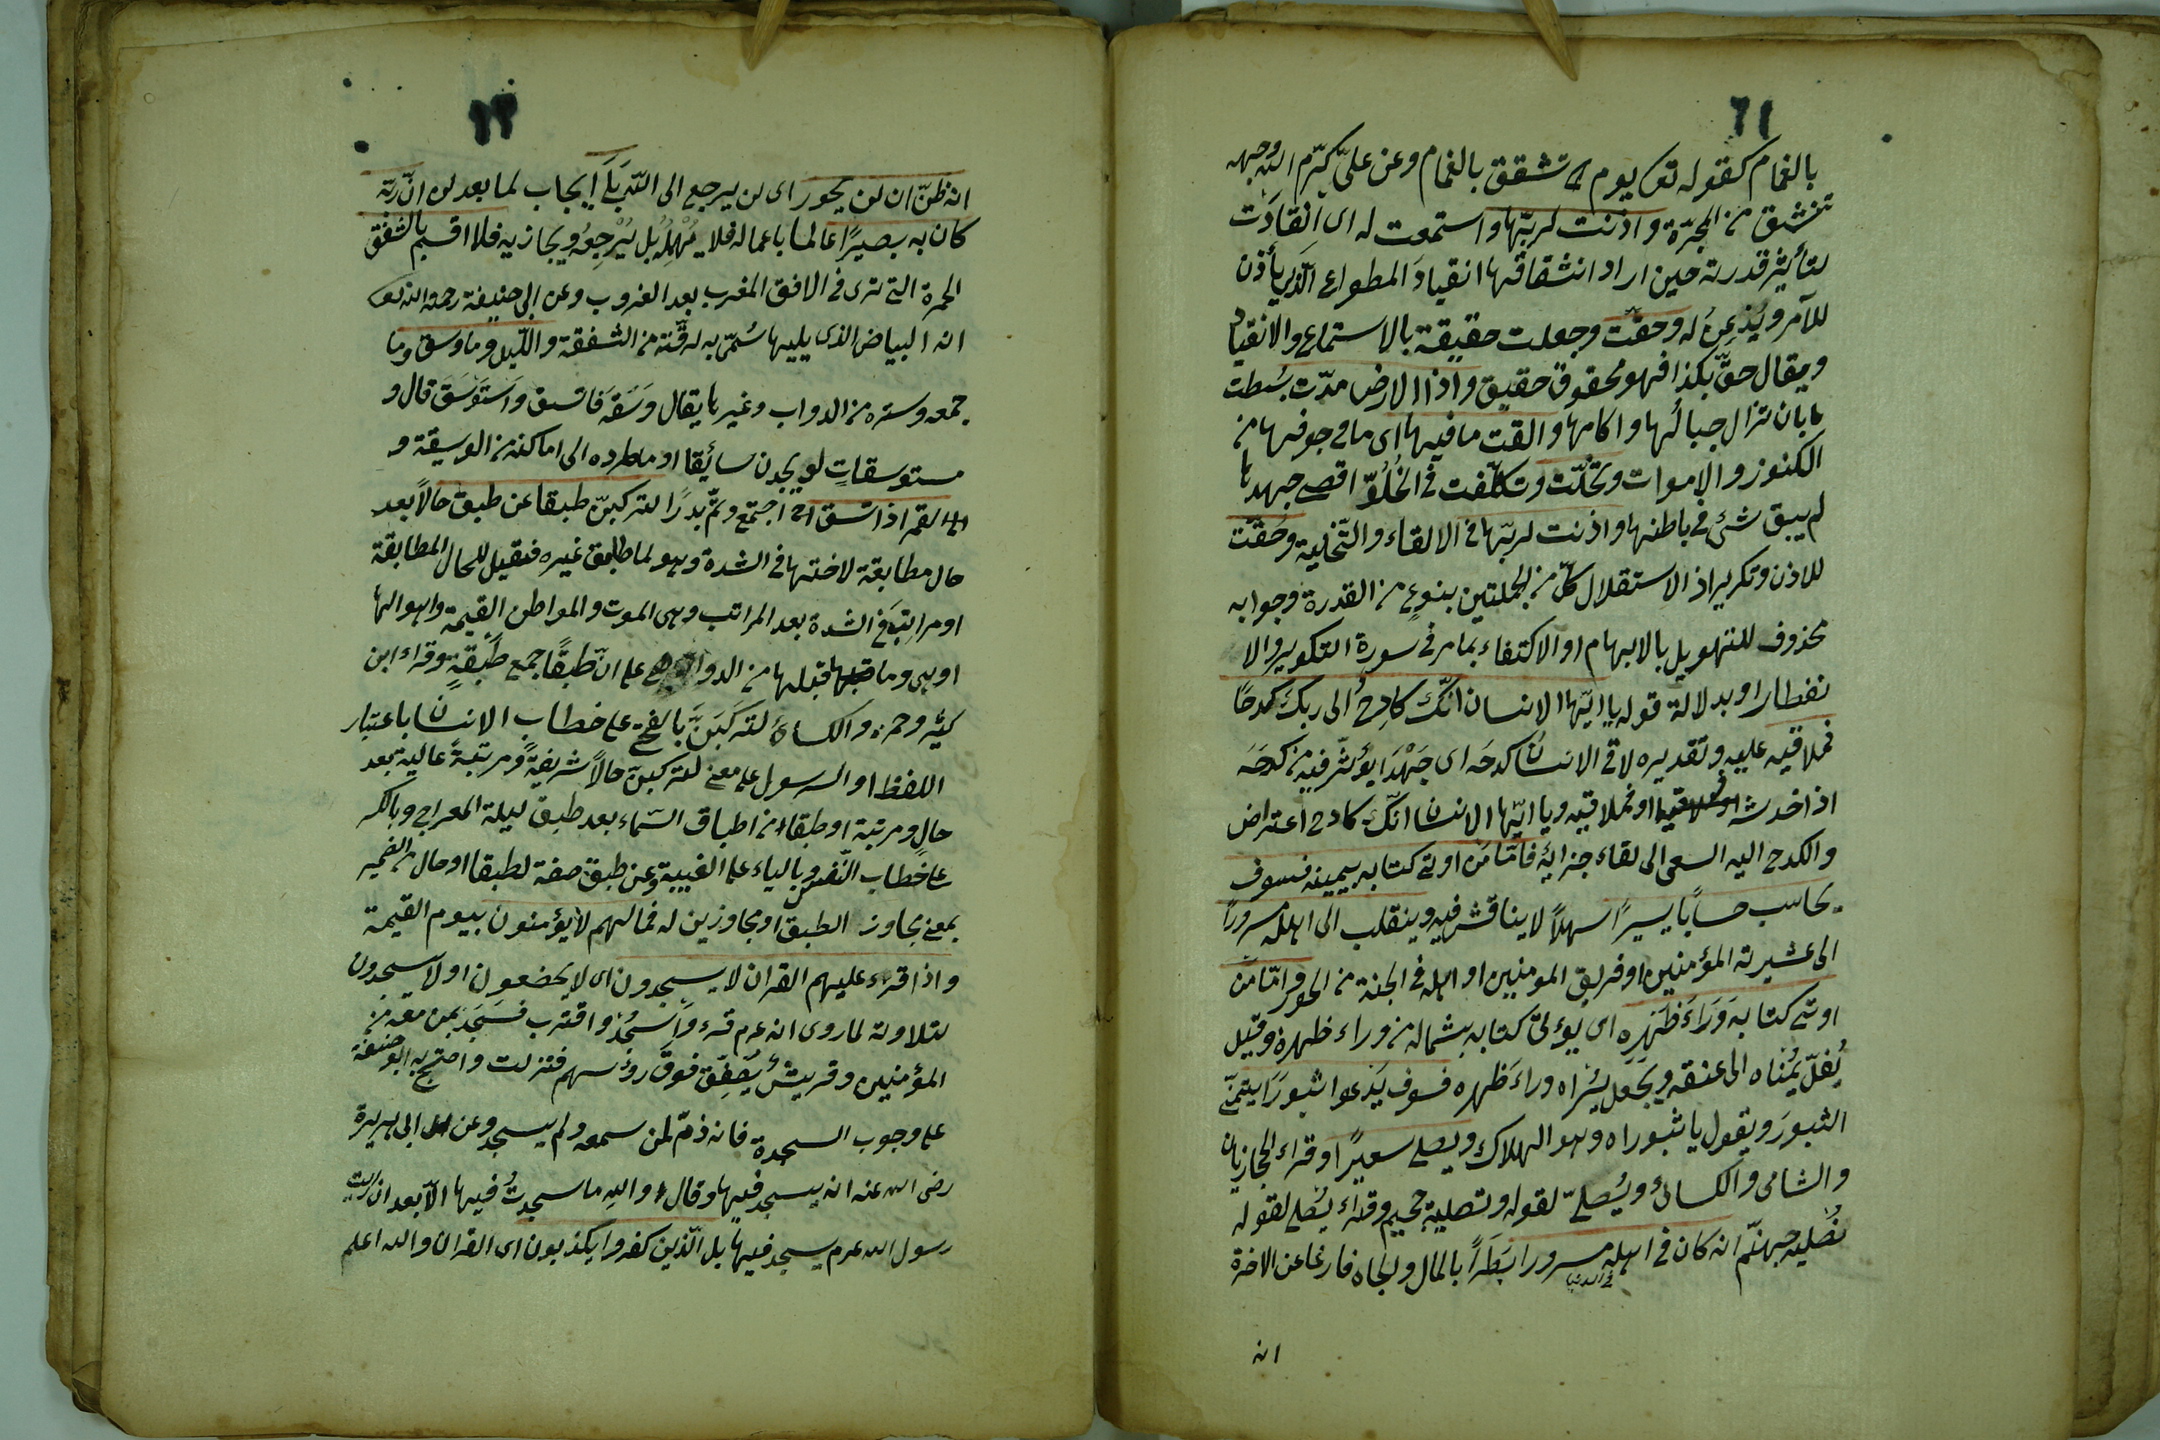 ٦١
بالغمام كقوله تع يوم تشقق بالغمام وعن على كرّم الله وجهه
تنشق من المجرّة واذنت لربّها واستمعت له اى انقادَت
لتأثير قدرته حين اراد انشقاقها انقيادَ المطواع الّذى يأذن
للآمر ويُذعِنُ له وحقت وجعلت حقيقة بالاستماع والانقياد
ويقال حقّ بكذا فهو محقوق حقيق واذا الارض مدّت بُسطت
بان تزال جبالُها واكامها والقت ما فيها اى ما فى جوفها من
الكنوز والاموات وتخلّت وتكلّفت فى الخُلُوّ اقصى جهدها
لم يبق شئ فى باطنها واذنت لربّها فى الالقاء والتّخلية وحُقّت
للاذن وتكرير اذا لاستقلال كلّ من الجملتين بنوعٍ من القدرة وجوابه
محذوف للتهويل بالابهام او الاكتفاء بما مر فى سورة التكوير والا
نفطار او بدلالة قوله يا ايّها الانسان انّك كادِحٌ الى ربك كدحًا
فملاقيه عليه وتقديره لاقى الانسانُ كدحَه اى جَهْدًا يؤثّر فيه من كدحَه
اذا خدشه او فملاقيه ويا ايّها الانسان انّك كادح اعتراض
والكدح اليه السعى الى لقاء جزائهٔ فامّا مَن اوتى كتابه بيمينه فسوف
يحاسب حسابًا يسيرًا سهلاً لا يناقش فيه وينقلب الى اهله مسرورًا
الى عشيرته المؤمنين او فريق المومنين او اهله فى الجنة من الحور وامّا مَن
اوتى كتابه وَرَاءَ ظَهْرِه اى يؤتى كتابه بشماله من وراء ظهره وقيل
يُغلّ يُمْناه الى عنقه ويجعل يُسْراه وراءَ ظهره فسوف يَدعوا ثبورًا يتمنّى
الثبورَ ويقول يا ثبوراه وهو الهلاك ويصلى سعيرًا وقراء الحجازيان
والشامى والكسائى ويُصلّى لقوله وتصلية جحيم وقراء يُصْلى لقوله
نُصْليه جهنّم انه كان فى اهله مسرورا بَطَرًا بالمال والجاه فارغا عن الاخرة
فى الدنيا
انه
٦٢
انه ظنّ ان لن يحور اى لن يرجع الى اللّه بَلَى ايجاب لما بعد لن انّ ربّه
كان به بصيرًا عالما باعماله فلا يُهْمِلُهُ بل يُرْجِعُهُ ويجازيه فلا اقسم بالشفق
الحمرة التى ترى فى الافق المغرب بعد الغروب وعن ابى حنيفة رحمه الله تع
انه البياض الذى يليها سُمّى به لرقّته من الشفقة واللّيل وما وسق وما
جمعه وستره من الدواب وغيرها يقال وَسَقَه فَاتّسق واسْتَوْسَقَ قال و
مستوسقاتٍ لو يجدن سائقا او ما طرده الى اماكنه من الوسيقة و
القمر اذا اتسق اى اجتمع وتمّ بدرًا لتركبنّ طبقا عن طبق حالاً بعد
حال مطابقة لاختها فى الشدة وهو لما طابق غيره فقيل للحال المطابقة
او مراتبَ فى الشدة بعد المراتب وهى الموت والمواطن القيمة واهوالها
او هى وما قبلها من الدواهى على انّ طبقًا جمع طَبَقةٍ وقراء ابن
كثير وحمزة والكسائى لتركَبَنّ بالفتح على خطاب الانسان باعتبار
اللفظ او الرسول على معنى لتركبنّ حالاً شريفةً ومرتبةً عالية بعد
حالٍ ومرتبة او طبقاء من اطباق السّماء بعد طبق ليلة المعراج وبالكسر
على خطاب النّفس وبالياء على الغيبة وعن طبق صفة لطبقا او حال من الضمير
بمعنى مجاوز الطبق او مجاوزين له فما لهم لا يؤمنون بيوم القيمة
واذا قراء عليهم القرآن لا يسجدون اى لا يخضعون او لا يسجدون
لتلاوته لما روى انه عم قرء واسْجُدْ واقترب فسَجَدَ بمن معه من
المؤمنين وقريشٌ يُصَفِّق فوق رؤسهم فنزلت واحتج به ابو حنيفة
على وجوب السجدة فانه ذمّ لمن سمعه ولم يسجد وعن ابى هريرة
رضى الله عنه انه يسجد فيها وقال والله ما سجدتُ فيها الّا بعد ان رايت
رسول الله عم يسجد فيها بل الّذين كفروا يكذبون اى القرآن والله اعلم